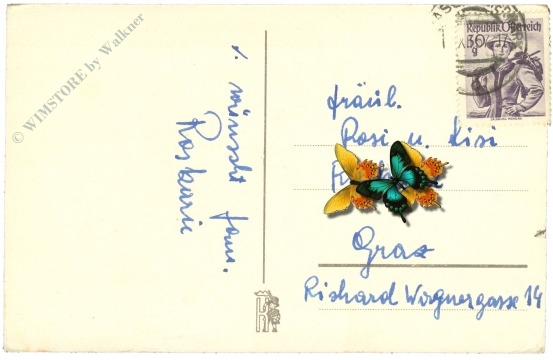 © WIMSTORE by Walkner
. wünscht Fam.
Republik Österreich
30 g
Fräul.
Rosi u. Lisi
Graz
Richard Wagnergasse 14